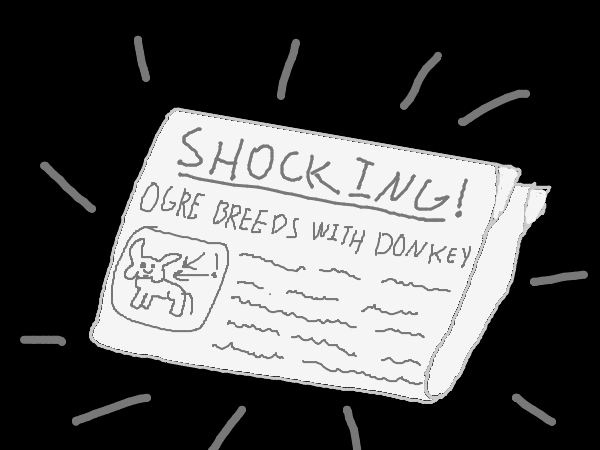 SHOCKING!
OGRE BREEDS WITH DONKEY